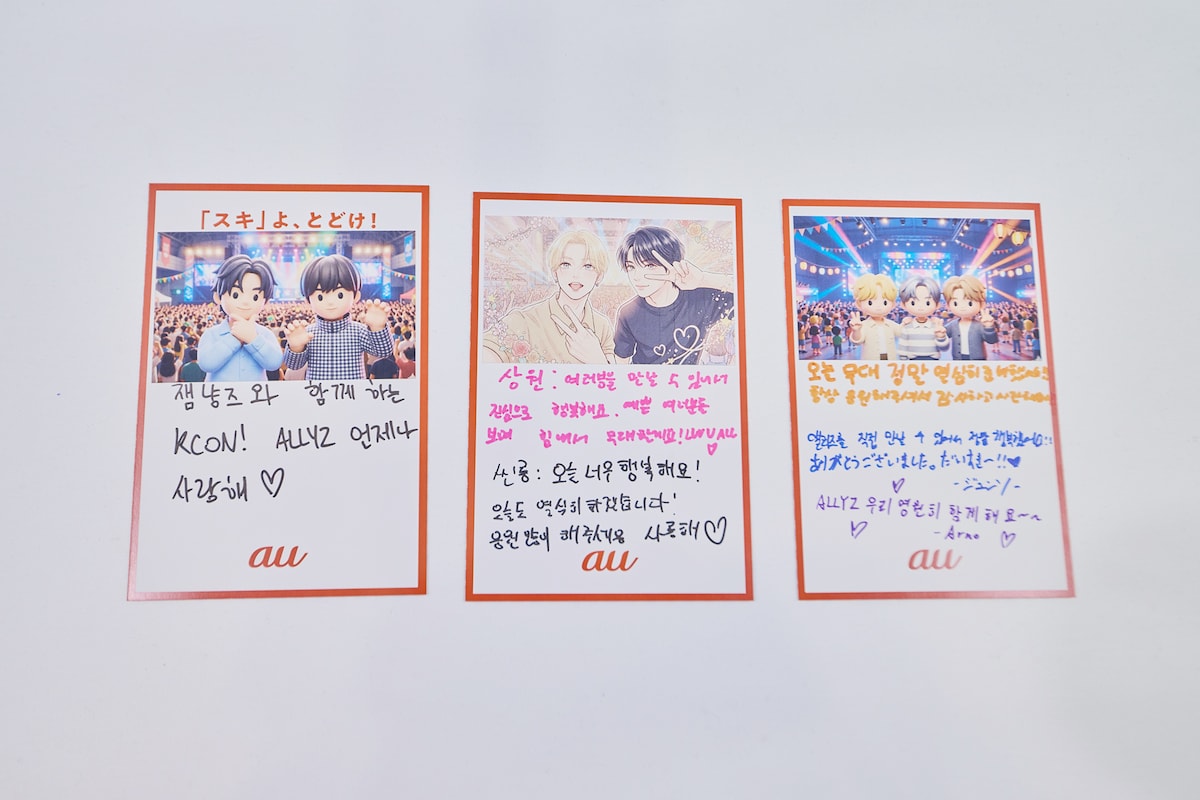 「スキ」よ、とどけ!
잼냥즈와 함께 하는
KCON! ALLYZ 언제나
사랑해 ♡
au
상원: 여러분을 만날 수 있어서
진심으로 행복해요. 예쁜 여러분들
보며 힘내서 무대할게요! ALL
씬롱: 오늘 너무 행복해요!
오늘도 열심히 하겠습니다!
응원 많이 해주세요 사룽해 ♡
au
오늘 무대 정말 열심히
항상 응원해주셔서 감사하고
앨리즈를 직접 만날 수 있어서 정말
ありがとうございました。だいすき〜!!♥
-ジュンソ-
ALLYZ 우리 영원히 함께 해요~~
-Arno ♡
au